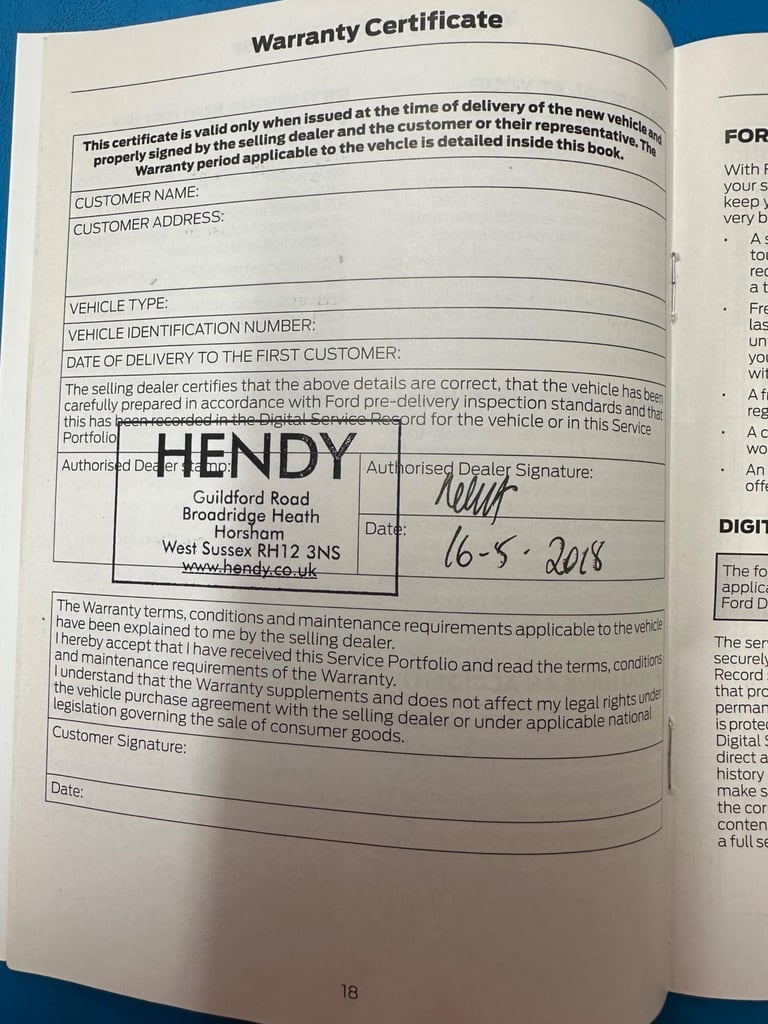 Warranty Certificate
This certificate is valid only when issued at the time of delivery of the new vehicle and
properly signed by the selling dealer and the customer or their representative. The
Warranty period applicable to the vehcle is detailed inside this book.
CUSTOMER NAME:
CUSTOMER ADDRESS:
VEHICLE TYPE:
VEHICLE IDENTIFICATION NUMBER:
DATE OF DELIVERY TO THE FIRST CUSTOMER:
The selling dealer certifies that the above details are correct, that the vehicle has been
carefully prepared in accordance with Ford pre-delivery inspection standards and that
this has been recorded in the Digital Service Record for the vehicle or in this Service
Portfolio
Authorised Dealer stamp:
HENDY
Guildford Road
Broadridge Heath
Horsham
West Sussex RH12 3NS
www.hendy.co.uk
Authorised Dealer Signature:
Date:
16-5-2018
The Warranty terms, conditions and maintenance requirements applicable to the vehicle
have been explained to me by the selling dealer.
I hereby accept that I have received this Service Portfolio and read the terms, conditions
and maintenance requirements of the Warranty.
I understand that the Warranty supplements and does not affect my legal rights under
the vehicle purchase agreement with the selling dealer or under applicable national
legislation governing the sale of consumer goods.
Customer Signature:
Date:
18
FOR
With F
your s
keep y
very b
A s
tou
rec
a t
Fre
las
un
you
wit
A f
reg
A c
wo
An
offe
DIGIT
The fo
applica
Ford D
The ser
securely
Record
that pro
perman
is prote
Digital S
direct a
history
make s
the cor
conten
a full se